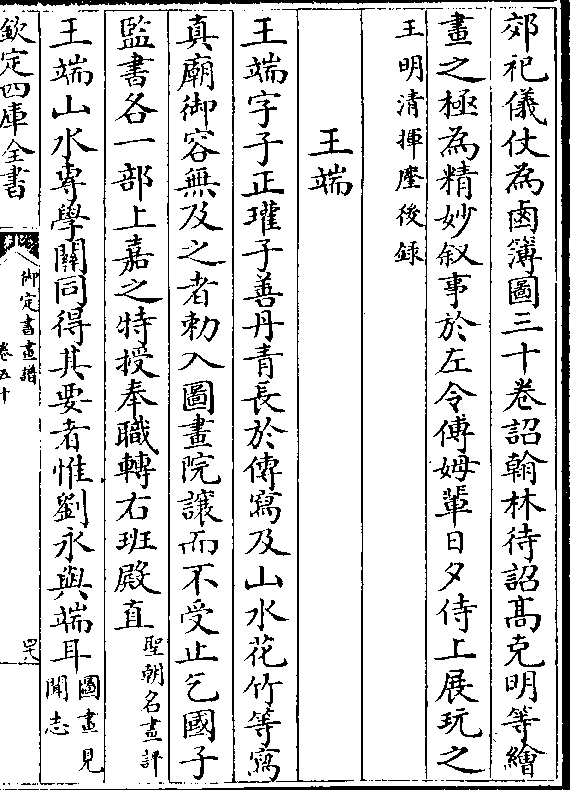 郊祀儀仗為鹵簿圖三十卷詔翰林待詔髙克明等繪
畫之極為精妙叙事於左令傅姆輩日夕侍上展玩之
王明清揮麈後録
王端
王端字子正瓘子善丹青長於傳寫及山水花竹等寫
真廟御容無及之者勅入圖畫院讓而不受止乞國子
監書各一部上嘉之特授奉職轉右班殿直聖朝名畫評
王端山水專學關同得其要者惟劉永與端耳圖畫見聞志
欽定四庫全書
御定書畫譜
卷五十
四六